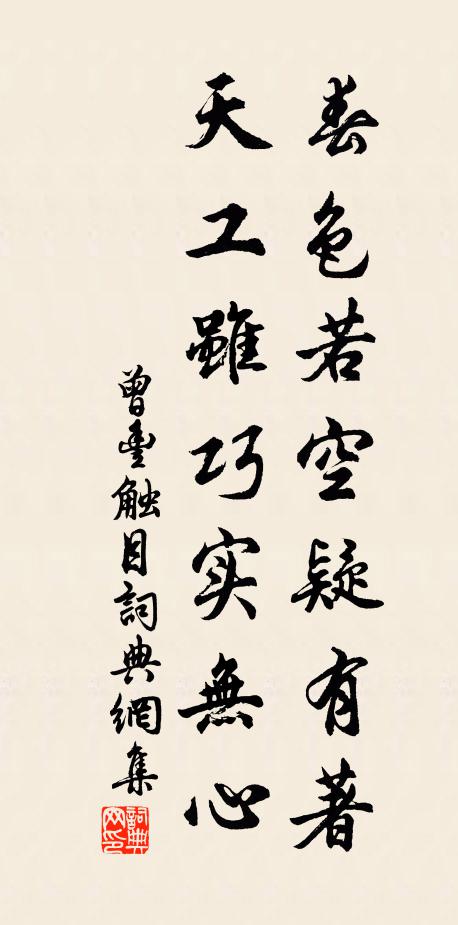 春色若空疑有著
天工雖巧实無心
曾豊触目詞典網集
詞典网印